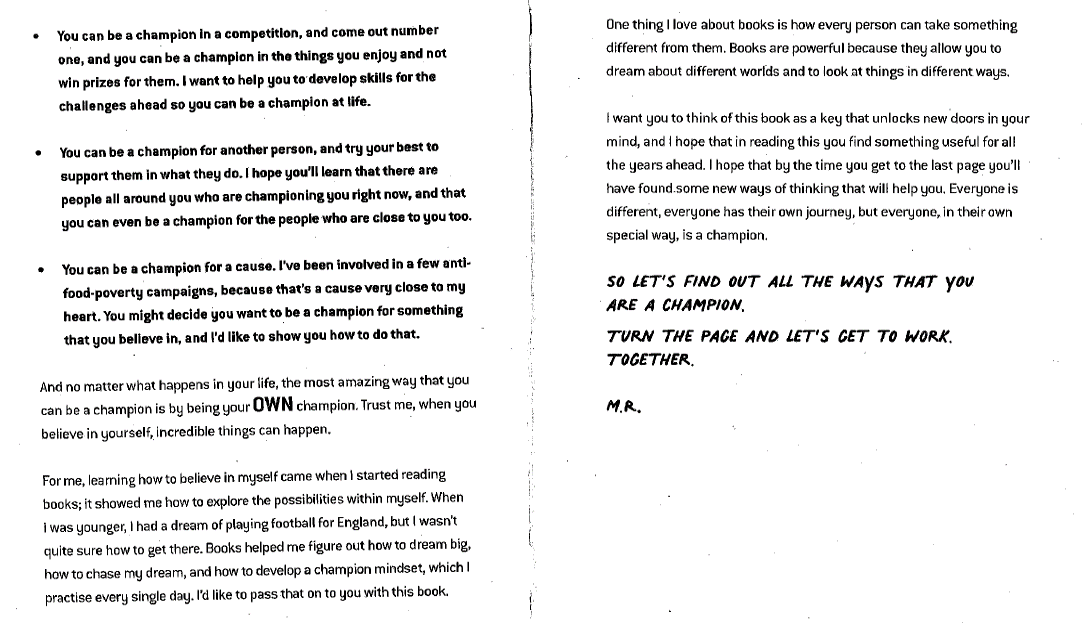 • You can be a champion in a competition, and come out number
one, and you can be a champion in the things you enjoy and not
win prizes for them. I want to help you to develop skills for the
challenges ahead so you can be a champion at life.
• You can be a champion for another person, and try your best to
support them in what they do. I hope you'll learn that there are
people all around you who are championing you right now, and that
you can even be a champion for the people who are close to you too.
• You can be a champion for a cause. I've been involved in a few anti-
food-poverty campaigns, because that's a cause very close to my
heart. You might decide you want to be a champion for something
that you believe in, and I'd like to show you how to do that.
And no matter what happens in your life, the most amazing way that you
can be a champion is by being your OWN champion. Trust me, when you
believe in yourself, incredible things can happen.
For me, learning how to believe in myself came when I started reading
books; it showed me how to explore the possibilities within myself. When
I was younger, I had a dream of playing football for England, but I wasn't
quite sure how to get there. Books helped me figure out how to dream big,
how to chase my dream, and how to develop a champion mindset, which I
practise every single day. I'd like to pass that on to you with this book.
One thing I love about books is how every person can take something
different from them. Books are powerful because they allow you to
dream about different worlds and to look at things in different ways.
I want you to think of this book as a key that unlocks new doors in your
mind, and I hope that in reading this you find something useful for all
the years ahead. I hope that by the time you get to the last page you'll
have found some new ways of thinking that will help you. Everyone is
different, everyone has their own journey, but everyone, in their own
special way, is a champion.
SO LET'S FIND OUT ALL THE WAYS THAT YOU
ARE A CHAMPION.
TURN THE PAGE AND LET'S GET TO WORK.
TOGETHER.
M.R.